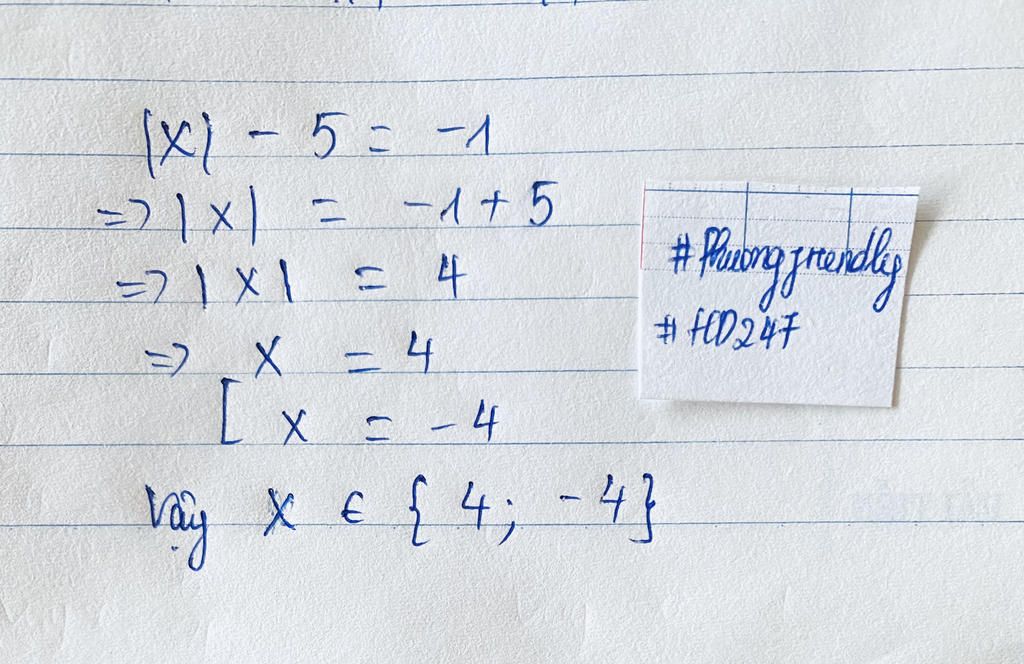 |x| - 5 = -1
=> |x| = -1 + 5
=> |x| = 4
=> x = 4
[ x = -4
Vậy x ∈ { 4; -4}
#Phuongfriendly
#HD247